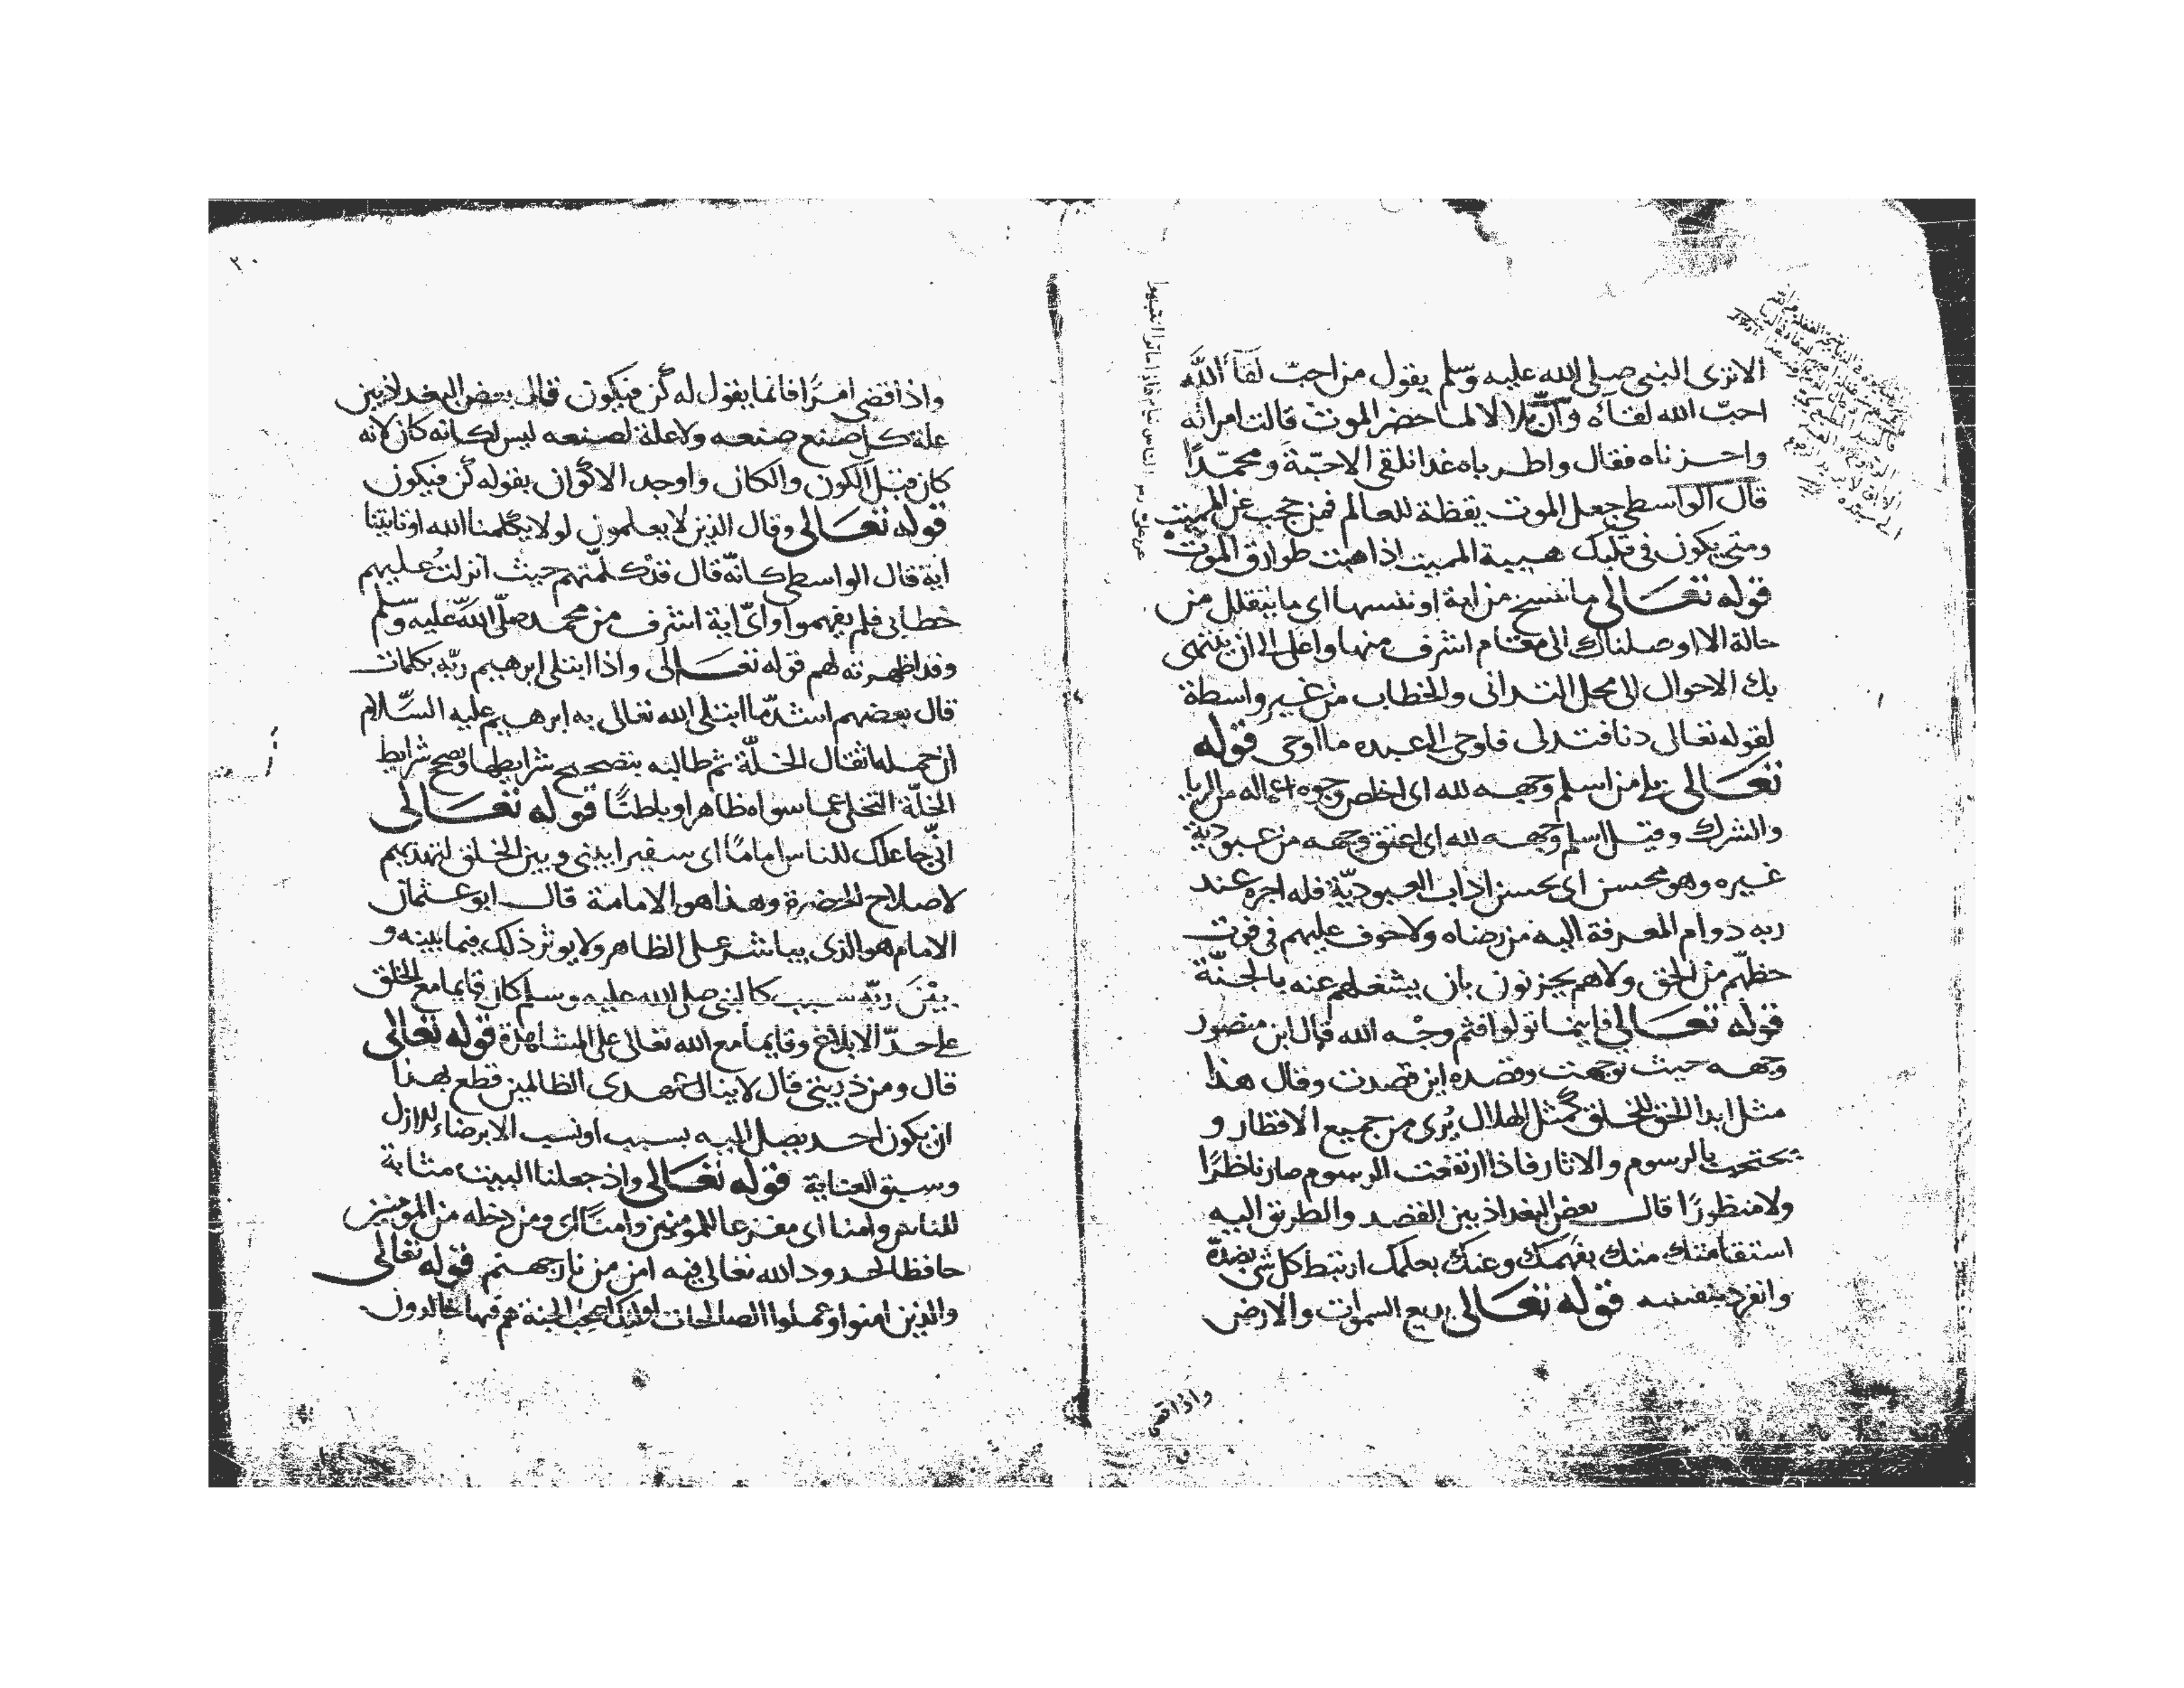 الا ترى النبى صلى الله عليه وسلم يقول من احبّ لقآ الله
احبّ الله لقاءه وانّ بلالا لما حضر الموت قالت امراته
واحزناه فقال واطرباه غدا نلقى الاحبّة ومحمّدًا
قال الواسطى جعل الموت يقظة للعالم فمن حجب عن الميت
ومتى يكون فى قلبك هيبة المميت اذا هبت طوارق الموت
قوله تعالى ما ننسخ من اية او ننسها اى ما ننقلك من
حالة الا اوصلناك الى مقام اشرف منها واعلى الى ان ينتهى
بك الاحوال الى محل التدانى والخطاب من غير واسطة
لقوله تعالى دنا فتدلى فاوحى الى عبده ما اوحى قوله
تعالى بلى من اسلم وجهه لله اى اخلص وجوه اعماله من الريا
والشرك وقيل اسلم وجهه لله اى اعتق وجهه من عبودية
غيره وهو محسن اى يحسن اداب العبوديّة فله اجره عند
ربه دوام المعرفة اليه من رضاه ولا خوف عليهم فى فوت
حظّهم من الحق ولا هم يحزنون بان يشغلهم عنه بالجنّة
قوله تعالى فاينما تولوا فثم وجْه الله قال ابن منصور
وجهه حيث توجهت وقصده اين قصدت وقال هذا
مثل ابدا الحق للخلق كمثل الهلال يُرى من جميع الاقطار و
يحتجب بالرسوم والاثار فاذا ارتفعت الرسوم صار ناظرًا
ولا منظورًا قال بعض البغداذيين القصد والطريق اليه
استقامتك منك بفهمك وعنك بعلمك ارتبط كل شى بضدّه
وانفرد بنفسه قوله تعالى بديع السموات والارض
واذا قضى
٢٠
واذا قضى امرًا فانما يقول له كن فيكون قال بعض البغداذيين
علة كل صنع صنعه ولا علة لصنعه ليس لكانه كان لانه
كان قبل الكون والكان واوجد الاكوان بقوله كن فيكون
قوله تعالى وقال الذين لا يعلمون لولا يكلمنا الله او تاتينا
اية قال الواسطى كانّه قال قدْ كلّمتهم حيث انزلتُ عليهم
خطابى فلم يفهموا واىّ اية اشرف من محمد صلّى اللّه عليه وسلّم
وقد اظهرته لهم قوله تعالى واذا ابتلى ابرهيم ربّه بكلمات
قال بعضهم اشدّ ما ابتلى الله تعالى به ابرهيم عليه السّلام
ان حمله اثقال الخلّة ثم طالبه بتصحيح شرايطها وتصح شرايط
الخلّة التخلى عما سواه ظاهرا وباطنًا قوله تعالى
انّى جاعلك للناس امامًا اى سفيرا بينى وبين الخلق لتهديهم
لاصلاح الحضرة وهذا هو الامامة قال ابو عثمان
الامام هو الذى يباشر على الظاهر ولا يوثر ذلك فيما بينه و
بيْن ربّه سبب كالنبى صلى الله عليه وسلم كان قايما مع الخلق
على حدّ الابلاغ وقايما مع الله تعالى على المشاهدة قوله تعالى
قال ومن ذريتى قال لا ينال عهدى الظالمين قطع بهذا
ان يكون احد يصل اليه بسبب او نسب الا برضاء الازل
وسبق العناية قوله تعالى واذ جعلنا البيت مثابة
للناس وامنا اى مفزعا للمؤمنين وامنًا اى ومن دخله من المؤمنين
حافظا لحدود الله تعالى فيه امن من نار جهنم قوله تعالى
والذين امنوا وعملوا الصالحات اولئك اصحب الجنة هم فيها خالدون